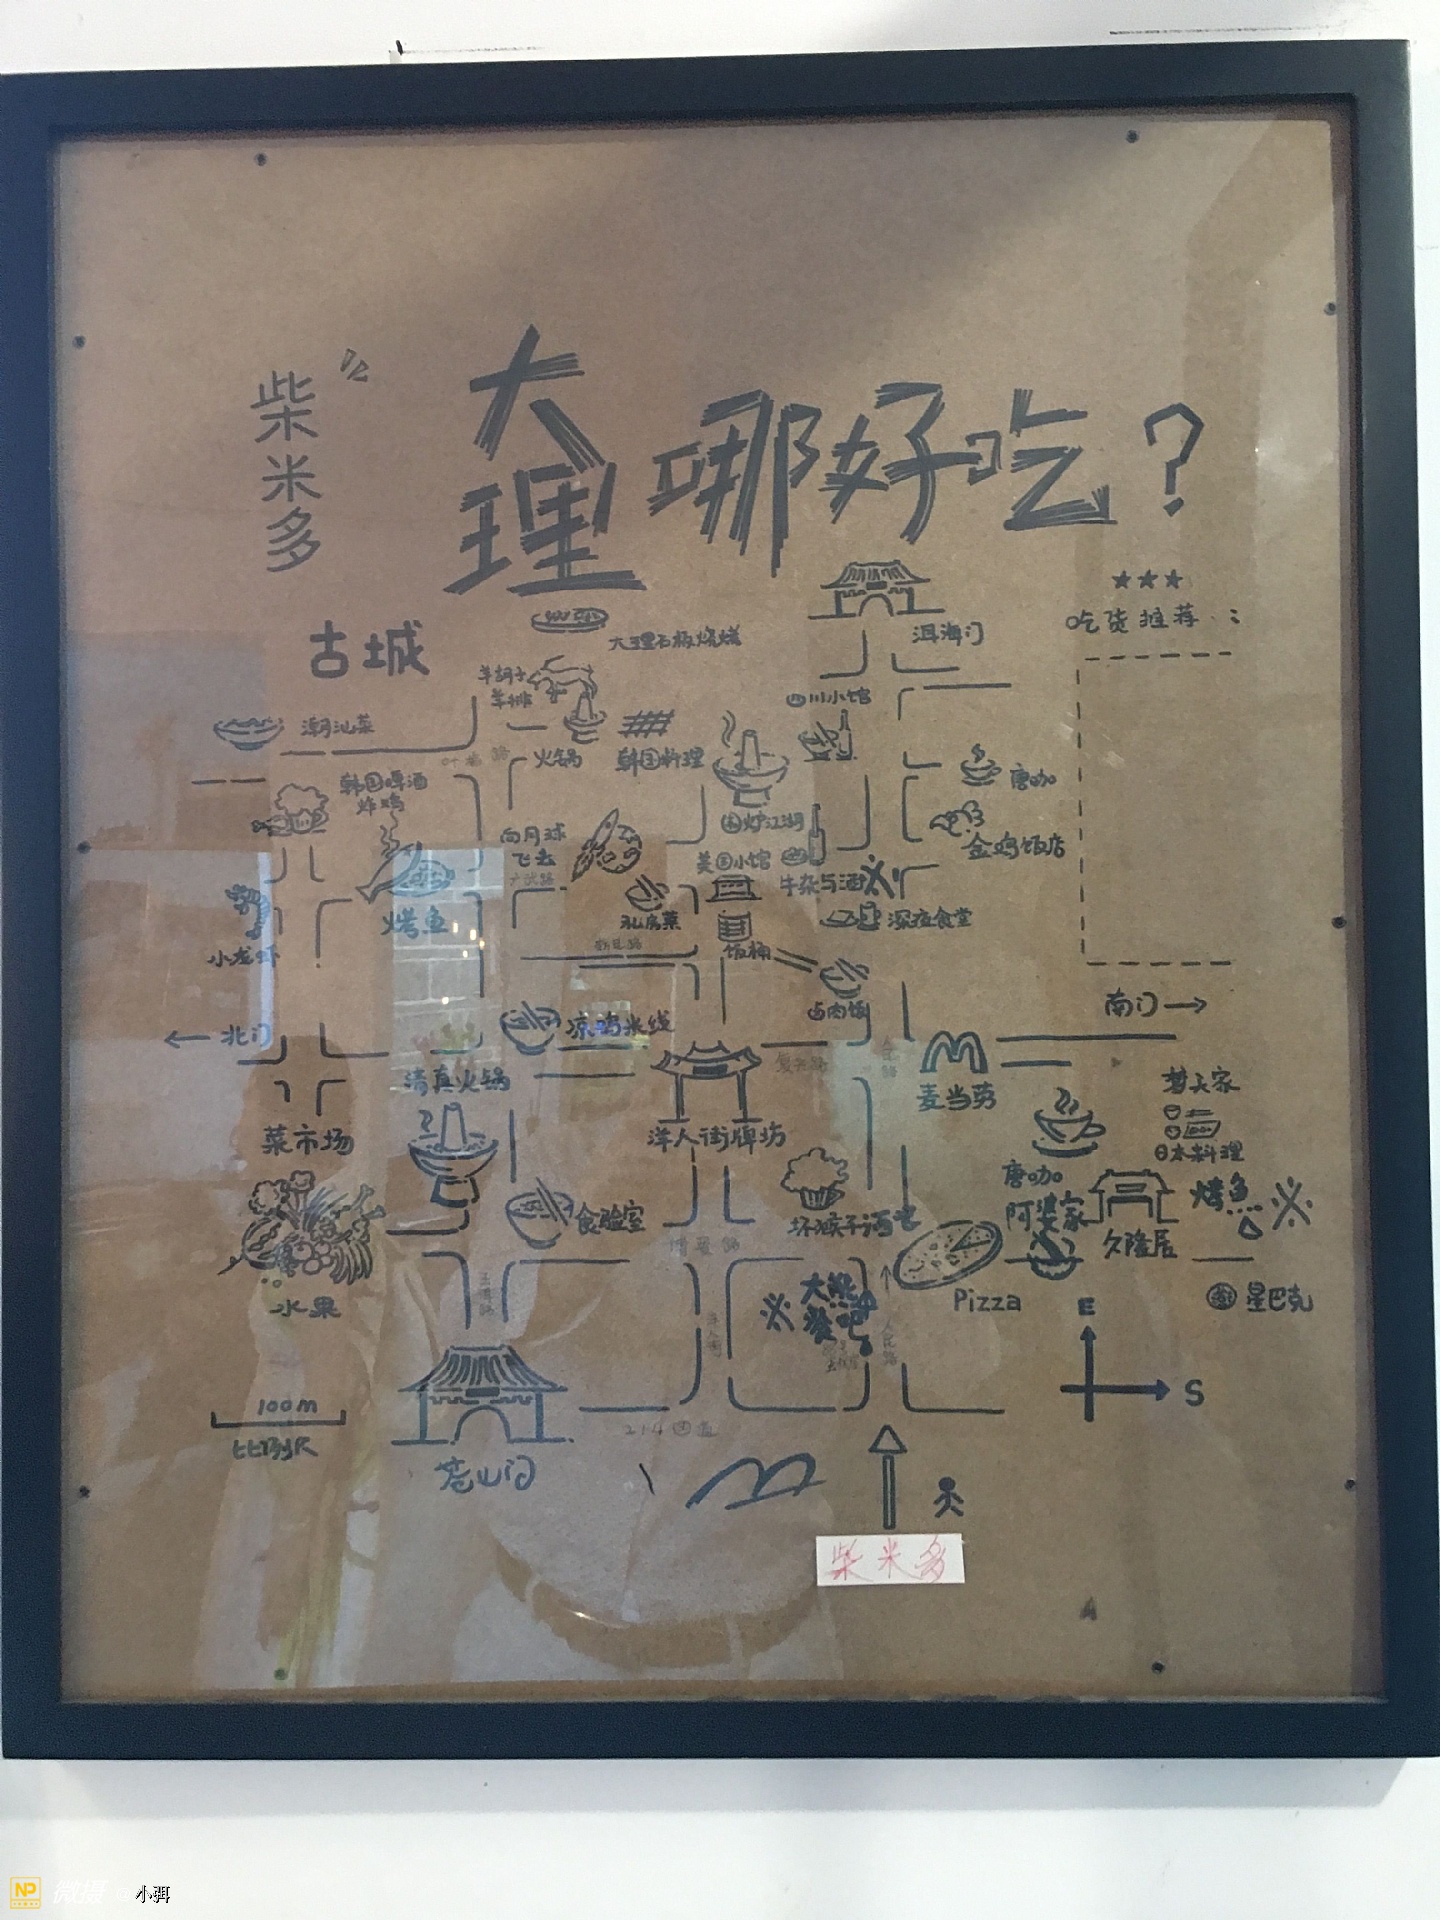 柴米多
大理哪好吃?
古城
大理石板烧烤
洱海门
★★★
吃货推荐:
羊胡子
羊排
四川小馆
潮汕菜
叶榆路
火锅
韩国料理
韩国啤酒
炸鸡
唐咖
围炉江湖
向月球
飞去
金鸡饭店
美国小馆
牛杂与酒
烤鱼
私房菜
深夜食堂
小龙虾
饭桶
卤肉饭
南门
北门
凉鸡米线
复兴路
人民路
清真火锅
麦当劳
菜市场
洋人街牌坊
日本料理
唐咖
阿婆家
烤鱼
食验室
坏猴子酒吧
久隆居
博爱路
水果
玉洱路
大熊
餐吧
人民路
Pizza
星巴克
E
S
100m
比例尺
214国道
苍山门
柴米多
NP
微摄
@小弭